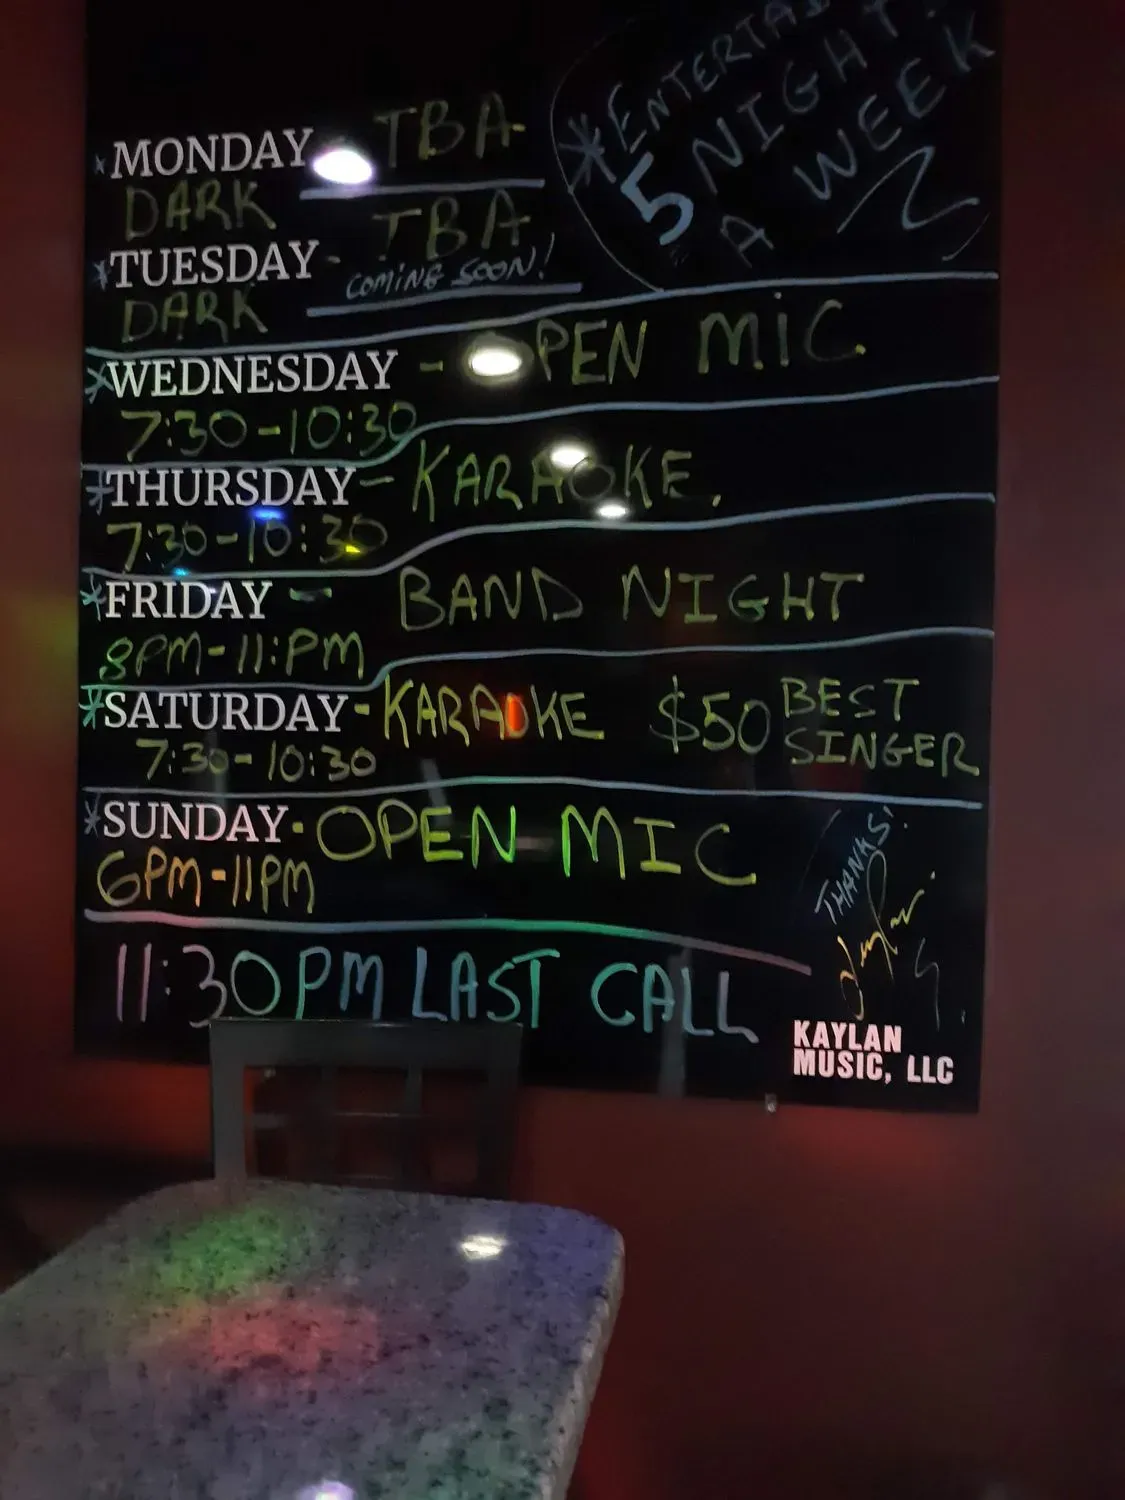 * ENTERTAI
5 NIGHT
A WEEK
* MONDAY - TBA
DARK
* TUESDAY - TBA
DARK COMING SOON!
* WEDNESDAY - OPEN MIC
7:30-10:30
* THURSDAY - KARAOKE.
7:30-10:30
* FRIDAY - BAND NIGHT
8PM-11:PM
* SATURDAY - KARAOKE $50 BEST SINGER
7:30-10:30
* SUNDAY - OPEN MIC
6PM-11PM
THANKS!
11:30PM LAST CALL
KAYLAN
MUSIC, LLC